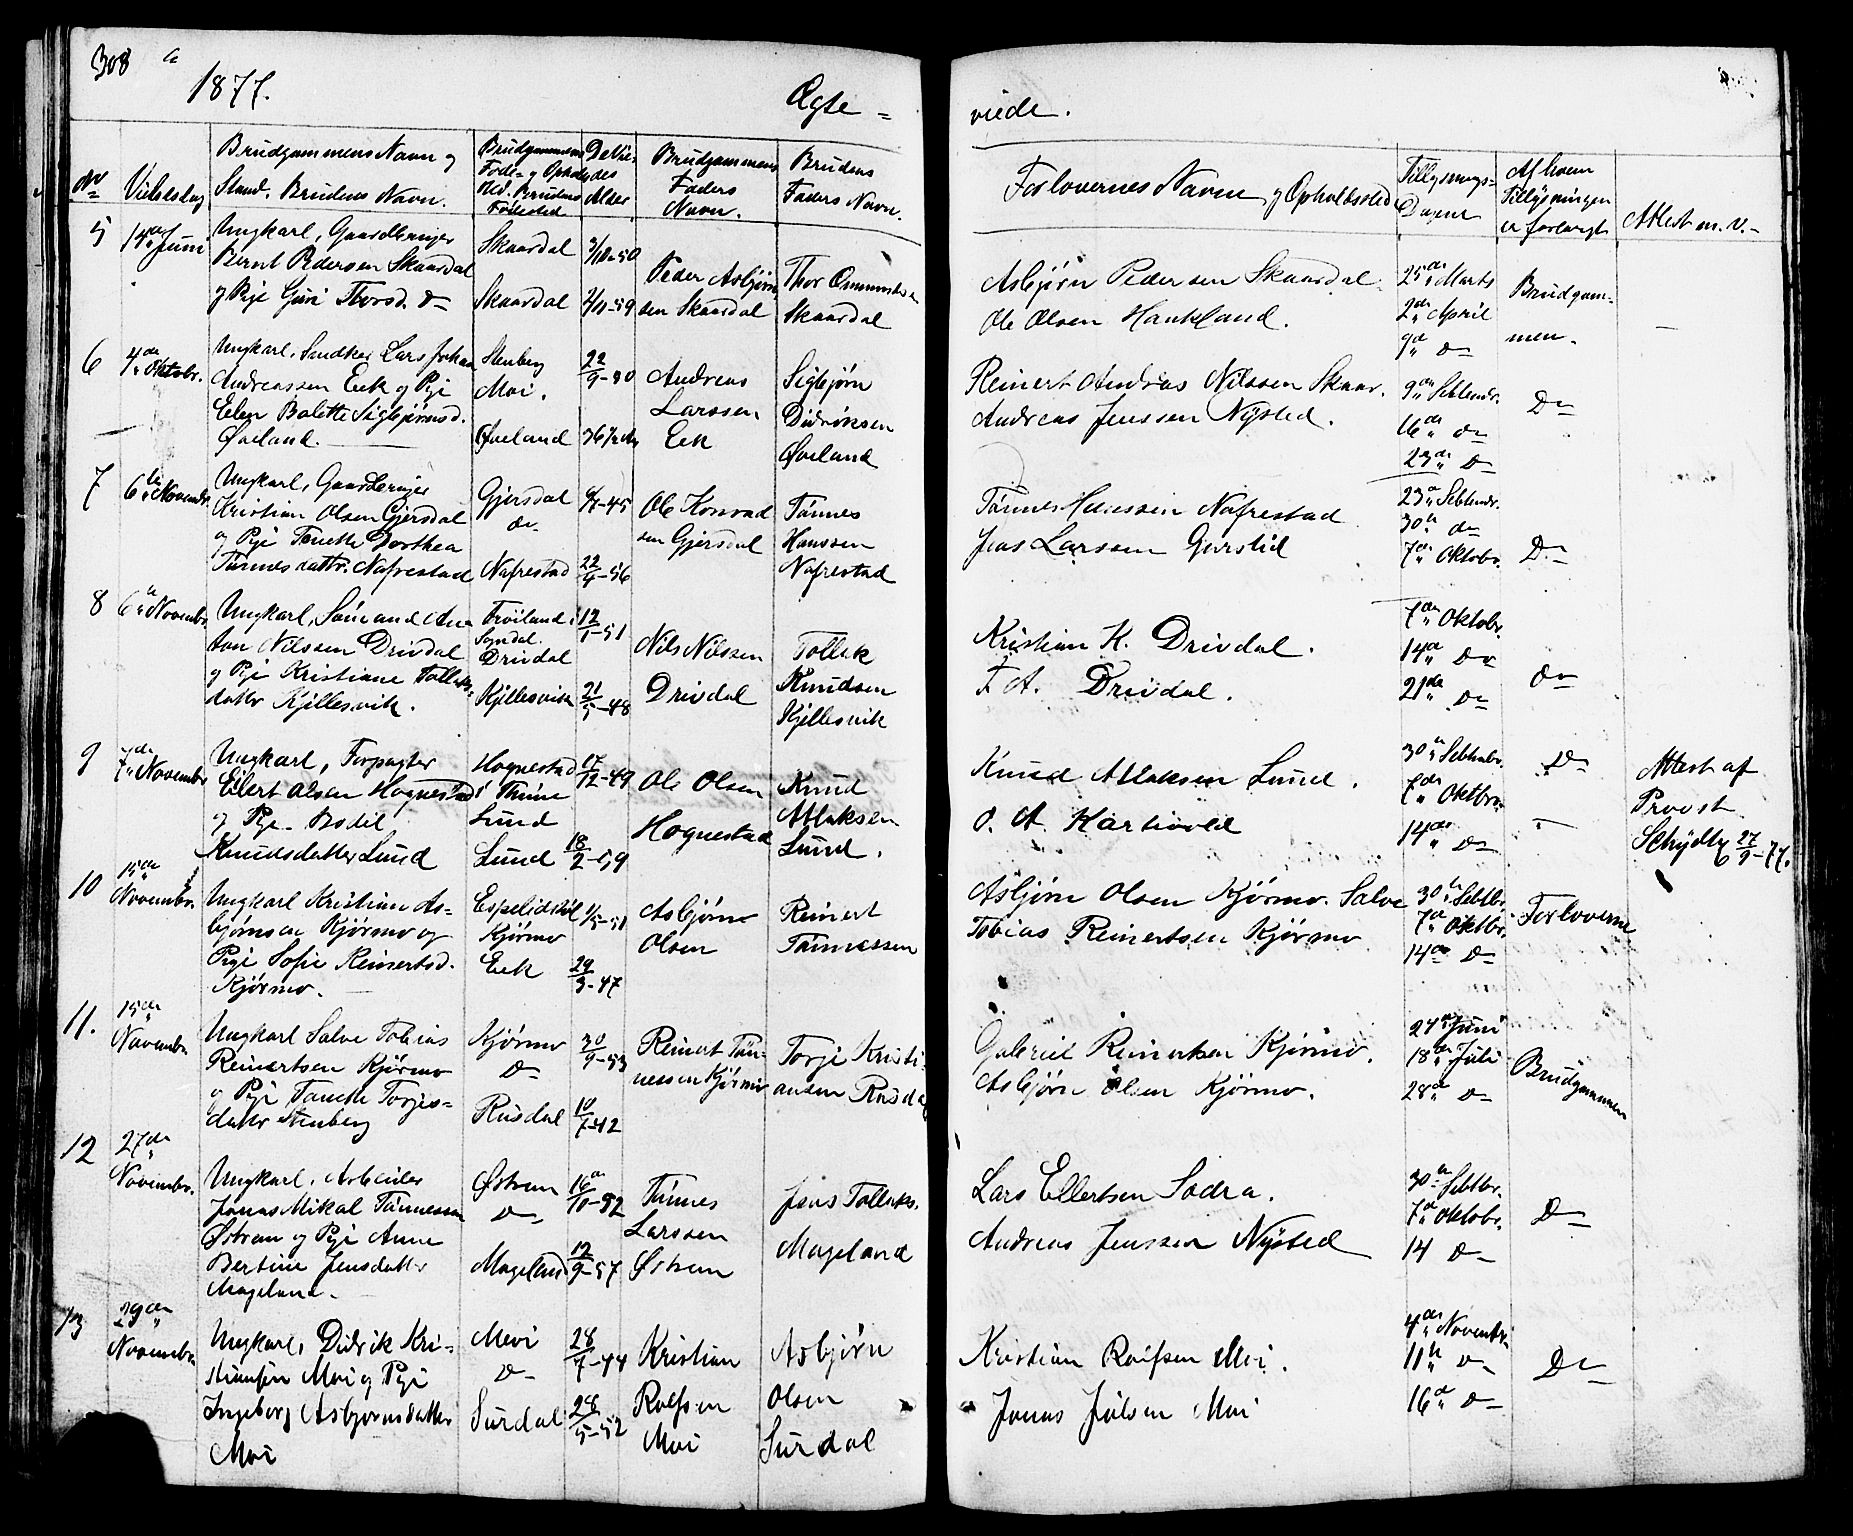 308 a
1877.
Ægte = viede.
No
Vielsesdag
Brudgommens Navn og
Stand. Brudens Navn.
Brudgommens
Føde- og Opholds
sted. Brudens
Fødested
De Vie-
des
Alder
Brudgommens
Faders
Navn.
Brudens
Faders Navn.
Forlovernes Navne og Opholdssted
Tillysnings-
Dagene
Af hvem
Tillysningen
er forlangt
Attest m. v.-
5
14de Juni
Ungkarl, Gaardbruger
Bernt Pedersen Skaardal
og Pige Guri Thorsd. do
Skaardal
Skaardal
3/10-50
2/11-59
Peder Asbjørn
sen Skaardal
Thor
Skaardal
Asbjørn Pedersen Skaardal.
Ole Olsen Haukland.
25de Marts
2den April
9d do
Brudgom-
men.
6
4de Oktobr.
Ungkarl, Snedker Lars Johan
Andreassen Eek og Pige
Elen Bolette Sigbjørnsd.
Øveland.
Stenberg
Moi.
Øveland
22/9-30
36 1/2 Aar
Andreas
Larssen
Eek
Sigbjørn
Didriksen
Øveland
Reinert Andreas Nilssen Skaar.
Andreas Jenssen Nysted.
9de Septembr.
16de do
23de do
Do
7
6te Novembr.
Ungkarl, Gaardbruger
Kristian Olsen Gjersdal
og Pige Tonette Dorthea
Tønnesdattr. Nafrestad
Gjersdal
do
Nafrestad
-45
22/4-56
Ole Konrad
sen Gjersdal
Tønnes
Hanssen
Nafrestad
Tønnes Hanssen Nafrestad
Jens Larssen Gjerstid
23de Septembr.
30te do
7de Oktobr.
Do
8
6te Novembr.
Ungkarl, Søren and An
ton Nilssen Drivdal
og Pige Kristiane Tolleks-
datter Kjillesvik.
Frøiland i
Sogndal.
Drivdal
Kjillesvik
12/1-51
21/5-48
Nils Nilssen
Drivdal
Tollak
Knudsen
Kjillesvik
Kristian K. Drivdal.
T. A. Drivdal.
7de Oktobr.
14de do
21de do
do
9
7de Novembr
Ungkarl, Forpagter
Eilert Olsen Hognestad
og Pige Bodil
Knudsdatter Lund
Hognestad
i Thime
Lund
Lund
17/12-49
18/2-59
Ole Olsen
Hognestad
Knud
Atlaksen
Lund.
Knud Atlaksen Lund.
O. A. Hartvold
30te Septembr.
7de Oktbr.
14de do
Do
Attest af
Provst
Schydtz 27/9-77.
10
15de
Novembr.
Ungkarl Kristian As-
bjørnsen Kjørmo og
Pige Sofie Reinertsd.
Kjørmo.
Espelidstøl
Kjørmo
Eek
1/5-51
29/3-47
Asbjørn
Olsen
Reinert
Tønnessen
Asbjørn Olsen Kjørmo. Salve
Tobias Reinertsen Kjørmo
30te Septbr.
7de Oktbr.
14de do
Forloverne
11.
15de
Novembr
Ungkarl Salve Tobias
Reinertsen Kjørmo
og Pige Tonette Torjes-
datter Stenberg
Kjørmo
Do
Rusdal
30/9-53
10/7-42
Reinert Tøn-
nessen Kjørmo
Torje Kristi-
ansen Rusdal
Gabriel Reinertsen Kjørmo.
Asbjørn Olsen Kjørmo.
24de Juni
18de Juli
28de do
Brudgommen
12
27de
Novembr.
Ungkarl, Arbeider
Jonas Mikal Tønnessen
Østrem og Pige Anne
Bertine Jensdatter
Mageland.
Østrem
Do
Mageland
16/10-52
12/9-57
Tønnes
Larssen
Østrem
Jens Tollaks.
Mageland
Lars Ellertsen Sodra.
Andreas Jenssen Nysted
30te Septbr.
7de Oktobr.
14 do
Do
13
29de
Novembr
Ungkarl, Didrik Kri-
stiansen Moi og Pige
Ingeborg Asbjørnsdatter
Moi
Moi
Do
Surdal
28/7-44
28/5-52
Kristian
Rolfsen
Moi
Asbjørn
Olsen
Surdal
Kristian Rolfsen Moi.
Jonas Jølsen Moi
4de Novembr.
11te do
16de do
Do